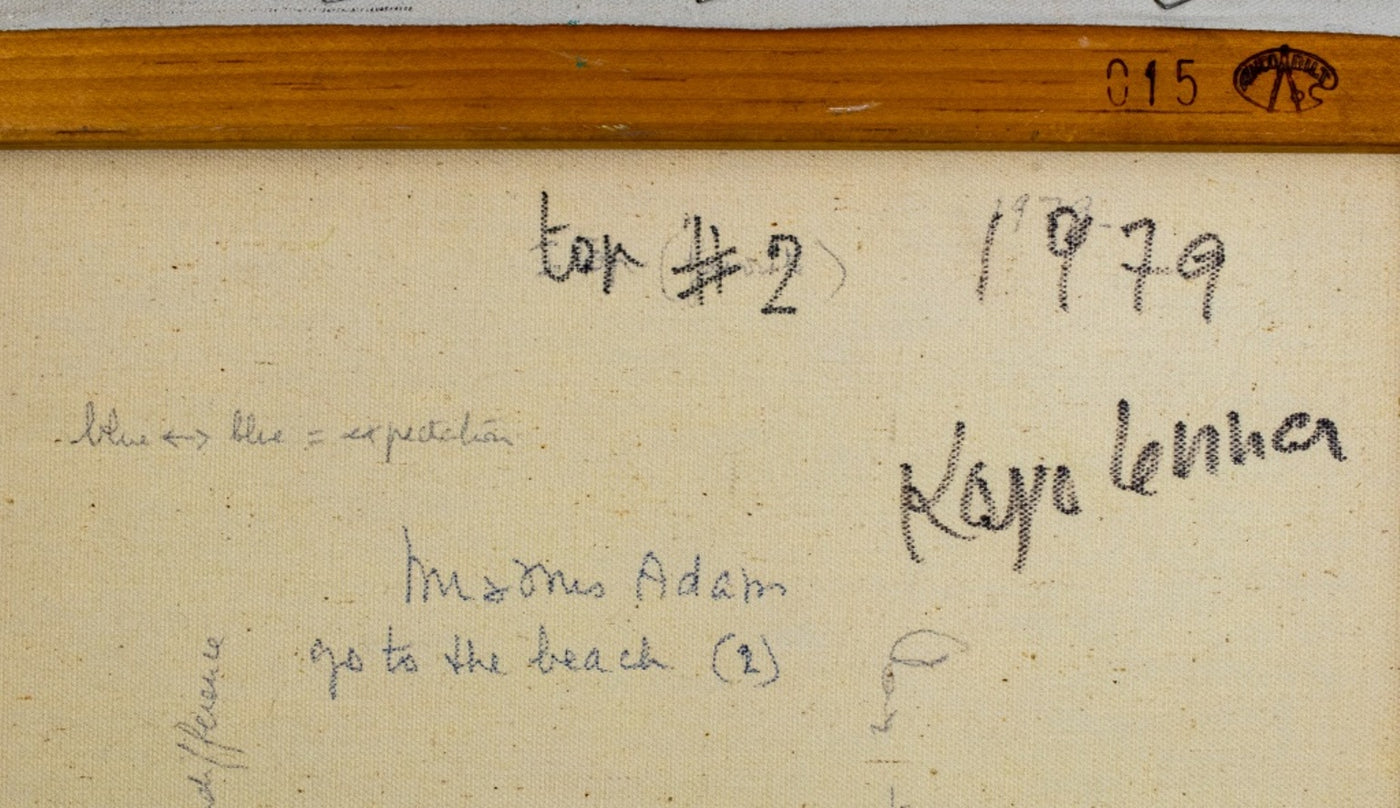 015
top #2
1979
1979
blue ↔ blue = expectation
Kayo Lennar
Mr & Mrs Adam
go to the beach (2)
difference